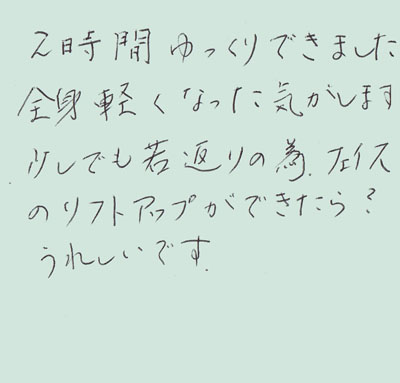 2時間ゆっくりできました
全身軽くなった気がします
少しでも若返りの為、フェイス
のリフトアップができたら?
うれしいです.